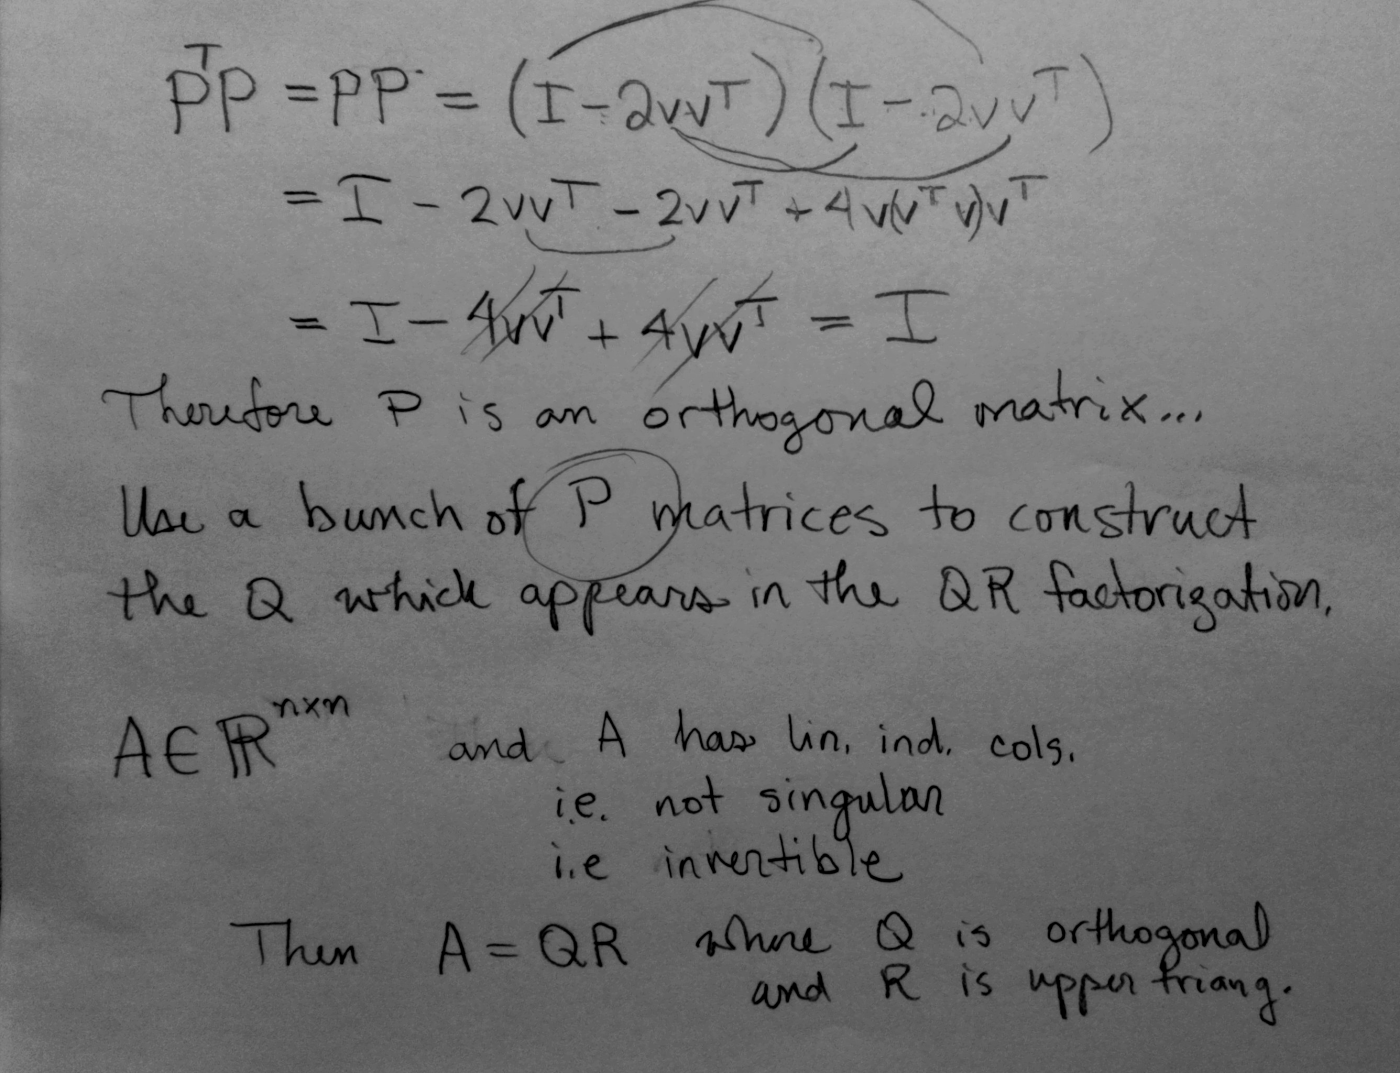 PᵀP = PP = (I - 2vvᵀ)(I - 2vvᵀ)
= I - 2vvᵀ - 2vvᵀ + 4v(vᵀv)vᵀ
= I - 4vvᵀ + 4vvᵀ = I
Therefore P is an orthogonal matrix...
Use a bunch of P matrices to construct
the Q which appears in the QR factorization.
A∈ℝⁿˣⁿ and A has lin. ind. cols.
i.e. not singular
i.e invertible
Then A = QR where Q is orthogonal
and R is upper triang.